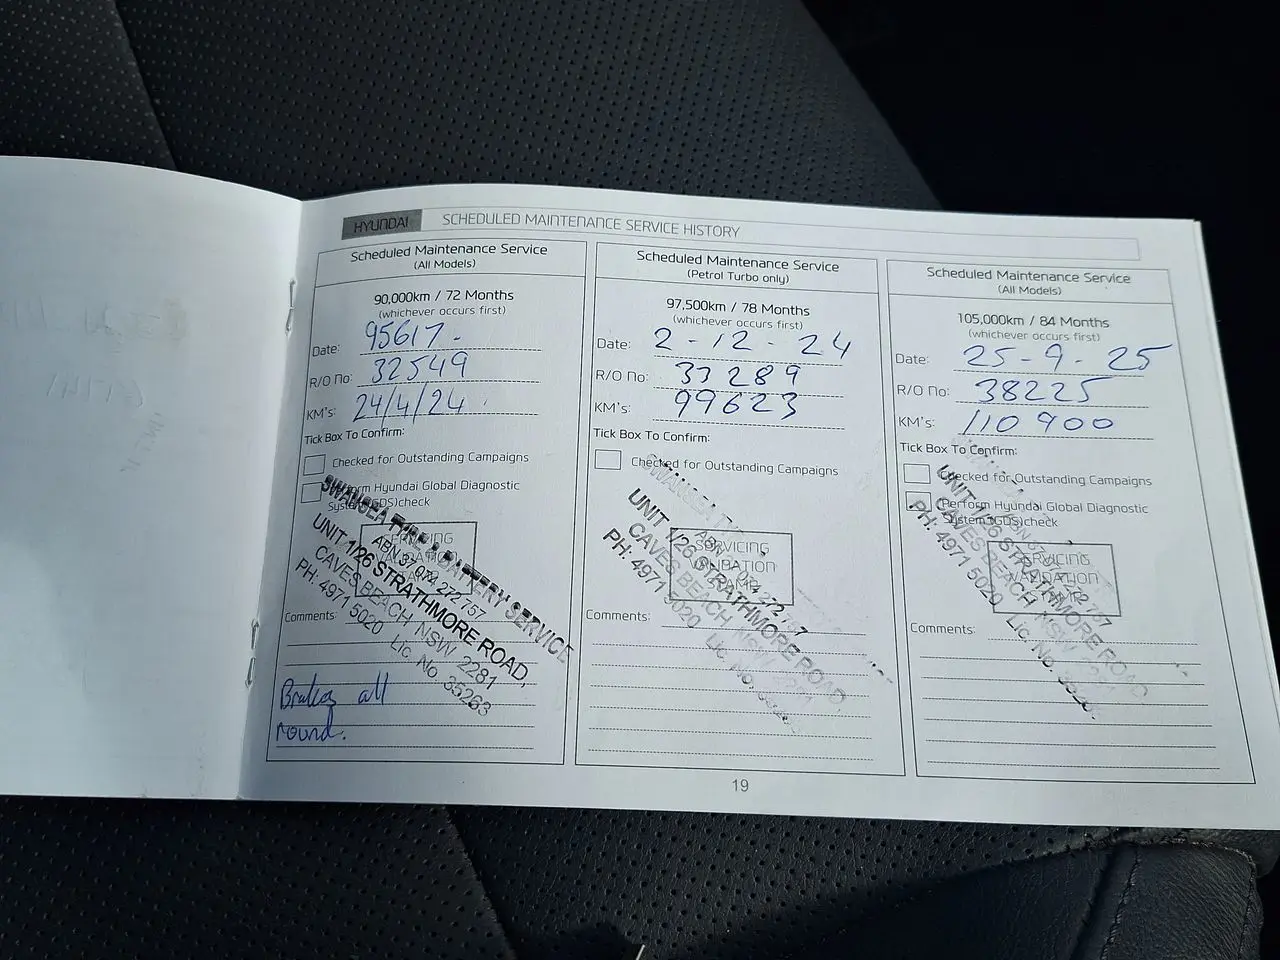 HYUNDAI SCHEDULED MAINTENANCE SERVICE HISTORY
Scheduled Maintenance Service
(All Models)
90,000km / 72 Months
(whichever occurs first)
Date: 95617.
R/O No: 32549
KM's: 24/4/24
Tick Box To Confirm:
Checked for Outstanding Campaigns
Perform Hyundai Global Diagnostic
System (GDS) check
SWANSEA TYRE & BATTERY SERVICE
ABN 37 074 272 757
UNIT 1/26 STRATHMORE ROAD,
CAVES BEACH NSW 2281
PH: 4971 5020 Lic. No. 35263
SERVICING
VALIDATION
Comments:
Brakes all
round.
Scheduled Maintenance Service
(Petrol Turbo only)
97,500km / 78 Months
(whichever occurs first)
Date: 2-12-24
R/O No: 33289
KM's: 99623
Tick Box To Confirm:
Checked for Outstanding Campaigns
SWANSEA
ABN
UNIT 1/26 STRATHMORE ROAD
CAVES BEACH NSW
PH: 4971 5020 Lic. No.
SERVICING
VALIDATION
Comments:
Scheduled Maintenance Service
(All Models)
105,000km / 84 Months
(whichever occurs first)
Date: 25-9-25
R/O No: 38225
KM's: 110900
Tick Box To Confirm:
Checked for Outstanding Campaigns
Perform Hyundai Global Diagnostic
System (GDS) check
UNIT 1/26 STRATHMORE ROAD
CAVES BEACH NSW
PH: 4971 5020 Lic. No.
SERVICING
VALIDATION
Comments:
19